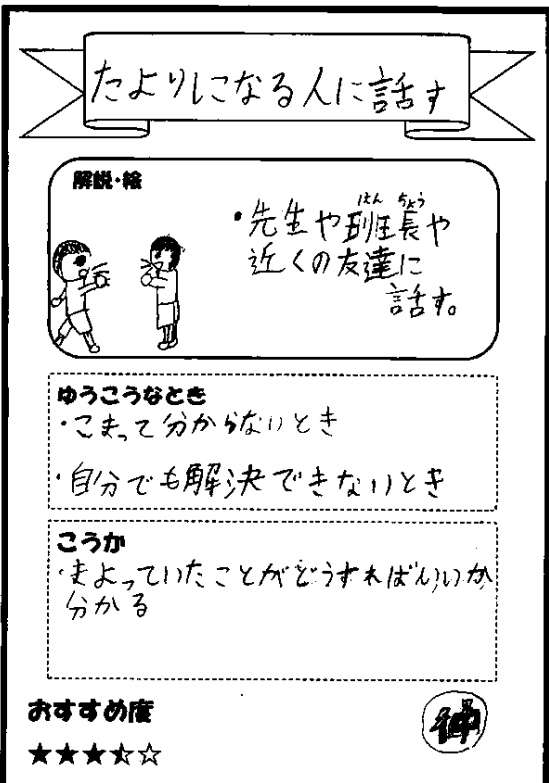 たよりになる人に話す
解説・絵
・先生や班長や
はん ちょう
近くの友達に
話す。
ゆうこうなとき
・こまって分からないとき
・自分でも解決できないとき
こうか
・まよっていたことがどうすればいいか
分かる
おすすめ度
神
★★★⯪☆